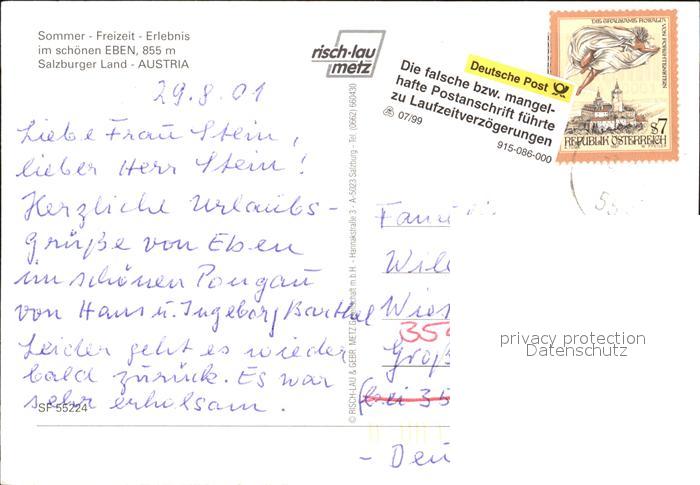 Sommer - Freizeit - Erlebnis
im schönen EBEN, 855 m
Salzburger Land - AUSTRIA
risch-lau
metz
Deutsche Post
Die falsche bzw. mangel-
hafte Postanschrift führte
zu Laufzeitverzögerungen
07/99
915-086-000
DIE GRAUSAME ROSALIA VON FORCHTENSTEIN
s7
REPUBLIK ÖSTERREICH
29.8.01
Liebe Frau Stein,
lieber Herr Stein!
Herzliche Urlaubs-
grüße von Eben
im schönen Pongau
von Hans u. Ingeborg Barthel
Leider geht es wieder
bald zurück. Es war
sehr erholsam.
SF 55224
© RISCH-LAU & GEBR. METZ Gesellschaft m.b.H. - Hannakstraße 3 - A-5023 Salzburg - Tel. (0662) 660430
55
Fam
Wil
Wies
35
Groß
(bei 35
- Deu
privacy protection
Datenschutz